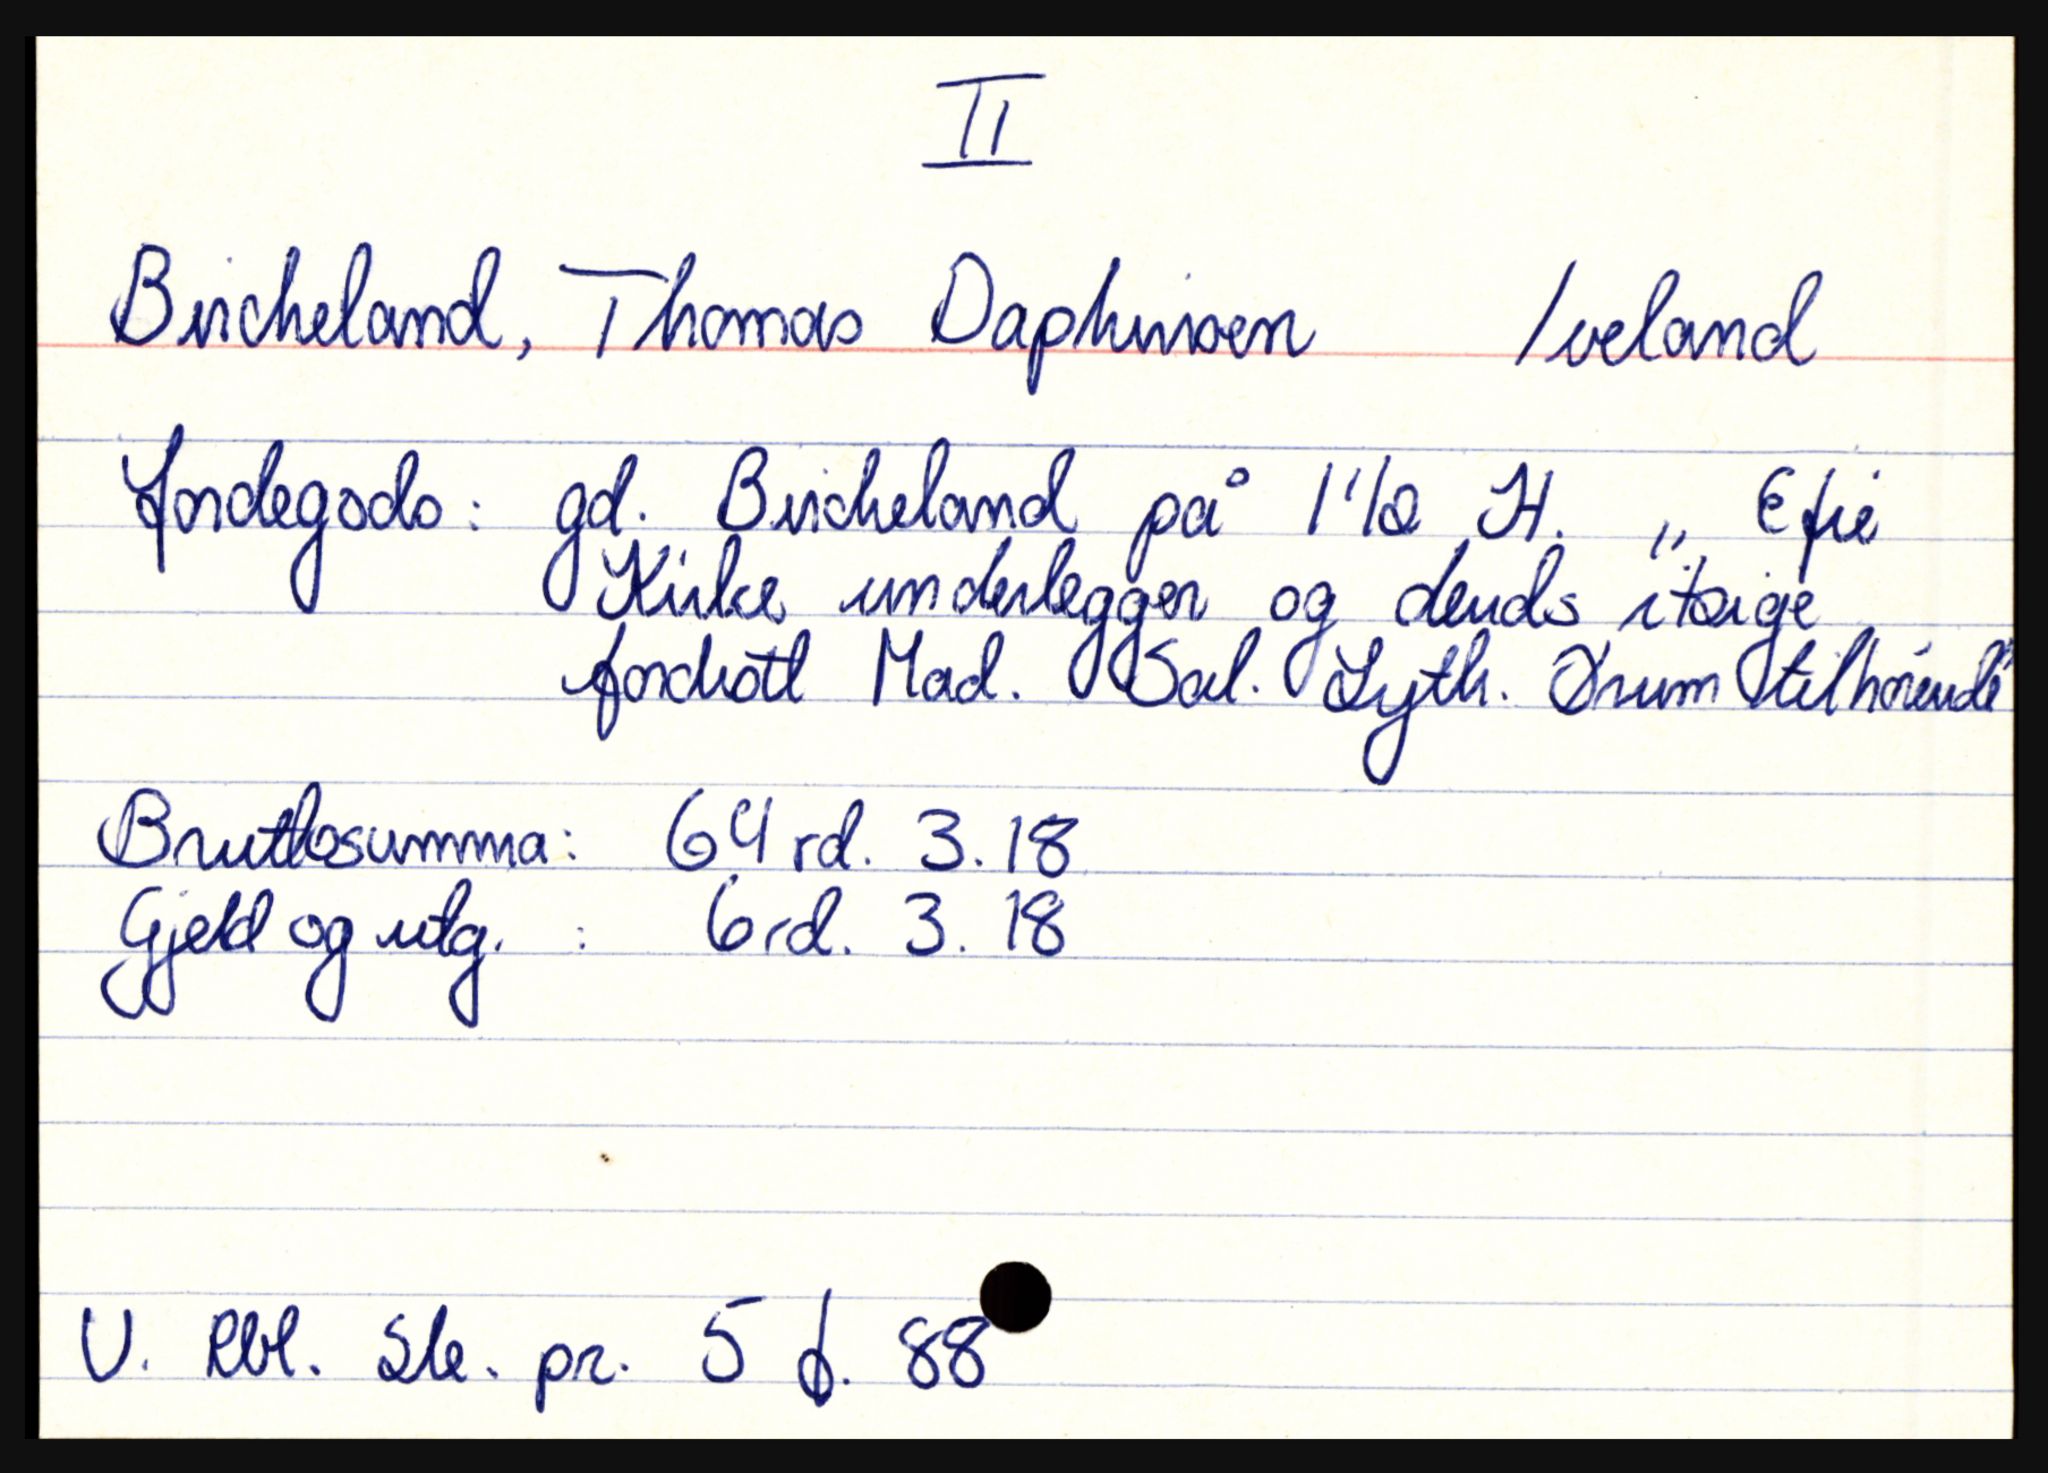 II
Bircheland, Thomas Daphinsen Iveland
Jordegods: gd. Bircheland på 1 1/2 H. „ Efie
Kirke underlegger og deuds itzige
fordrotl Mad. Sal. Lyth. Ørum tilhørende"
Bruttosumma: 64 rd. 3. 18
Gjeld og utg. : 6 rd. 3. 18
V. Rbl. Ske. pr. 5 f. 88